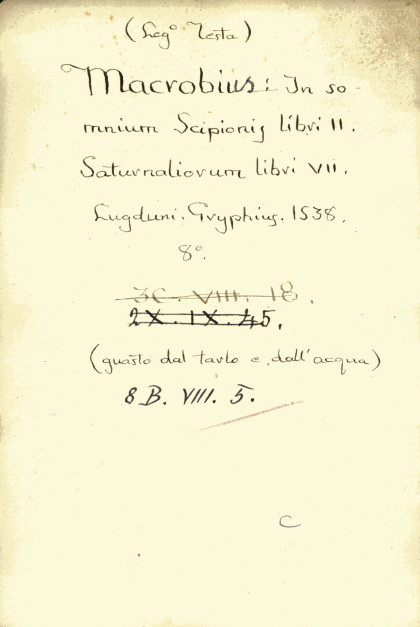 (Leg° Testa)
Macrobius: In so-
mnium Scipionis libri II.
Saturnaliorum libri VII.
Lugduni. Gryphius. 1538.
8°.
3C. VIII. 18.
2X. IX. 45.
(guasto dal tarlo e dall'acqua)
8 B. VIII. 5.
C